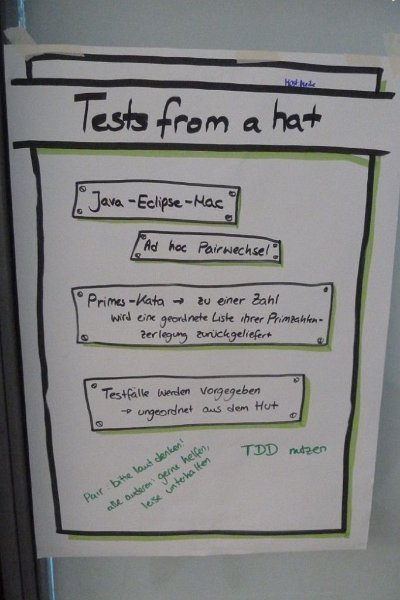 Tests from a hat
Java-Eclipse-Mac
Ad hoc Pairwechsel
Primes-Kata → zu einer Zahl
wird eine geordnete Liste ihrer Primzahlen-
zerlegung zurückgeliefert
Testfälle werden vorgegeben
→ ungeordnet aus dem Hut
Pair: bitte laut denken!
alle anderen: gerne helfen,
leise unterhalten
TDD nutzen